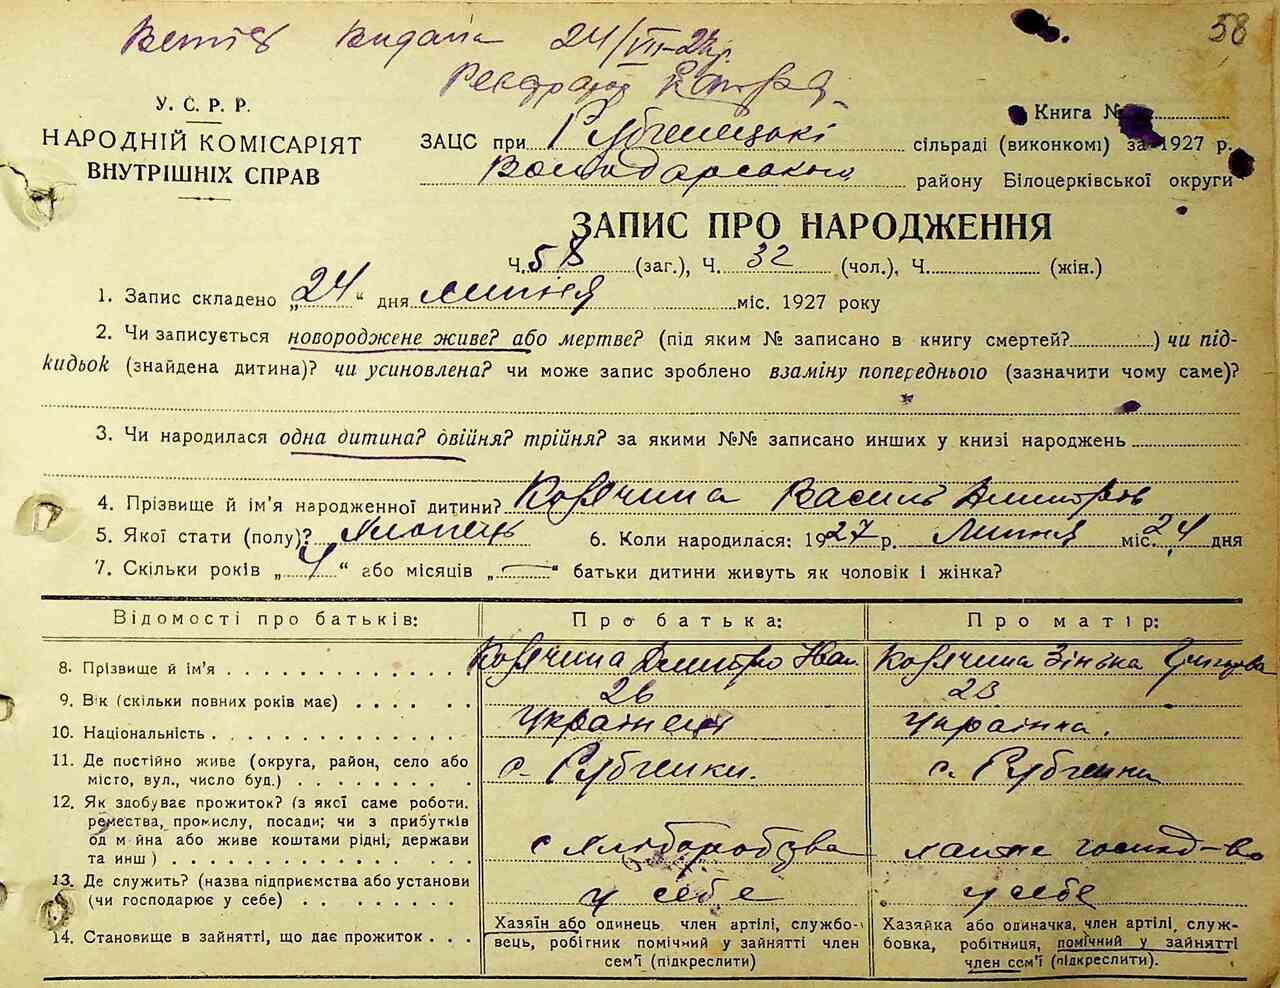 Витяг видана 24/VII-27р.
Реєстратор
58
У. С. Р. Р.
НАРОДНІЙ КОМІСАРІЯТ
ВНУТРІШНІХ СПРАВ
Книга №
ЗАЦС при Рубченецькі сільраді (виконкомі) за 1927 р.
Володарського району Білоцерківської округи
ЗАПИС ПРО НАРОДЖЕННЯ
Ч. 58 (заг.), Ч. 32 (чол.), Ч. (жін.)
1. Запис складено „24“ дня липня міс. 1927 року
2. Чи записується новороджене живе? або мертве? (під яким № записано в книгу смертей? ) чи під-
кидьок (знайдена дитина)? чи усиновлена? чи може запис зроблено взаміну попереднього (зазначити чому саме)?
3. Чи народилася одна дитина? двійня? трійня? за якими №№ записано инших у книзі народжень
4. Прізвище й ім'я народженної дитини? Корячина Василь Дмитров
5. Якої стати (полу)? хлопець 6. Коли народилася: 1927 р. Липня міс. 24 дня
7. Скільки років „4“ або місяців „—“ батьки дитини живуть як чоловік і жінка?
Відомості про батьків: Про батька: Про матір:
8. Прізвище й ім'я Корячина Дмитро Іван Корячина Зінька Григорова
9. Вік (скільки повних років має) 26 23
10. Національність Українець Українка.
11. Де постійно живе (округа, район, село або
місто, вул., число буд.) с. Рубченки. с. Рубченки
12. Як здобуває прожиток? (з якої саме роботи,
ремества, промислу, посади; чи з прибутків
од майна або живе коштами рідні, держави
та инш) с хліборобства хатнє госпид-во
13. Де служить? (назва підприємства або установи
(чи господарює у себе) у себе у себе
14. Становище в зайнятті, що дає прожиток
Хазяїн або одинець член артілі, службо-
вець, робігник помічний у зайнятті член
сем'ї (підкреслити)
Хазяйка або одиначка, член артілі, служ-
бовка, робітниця, помічний у зайнятті
член сем'ї (підкреслити).